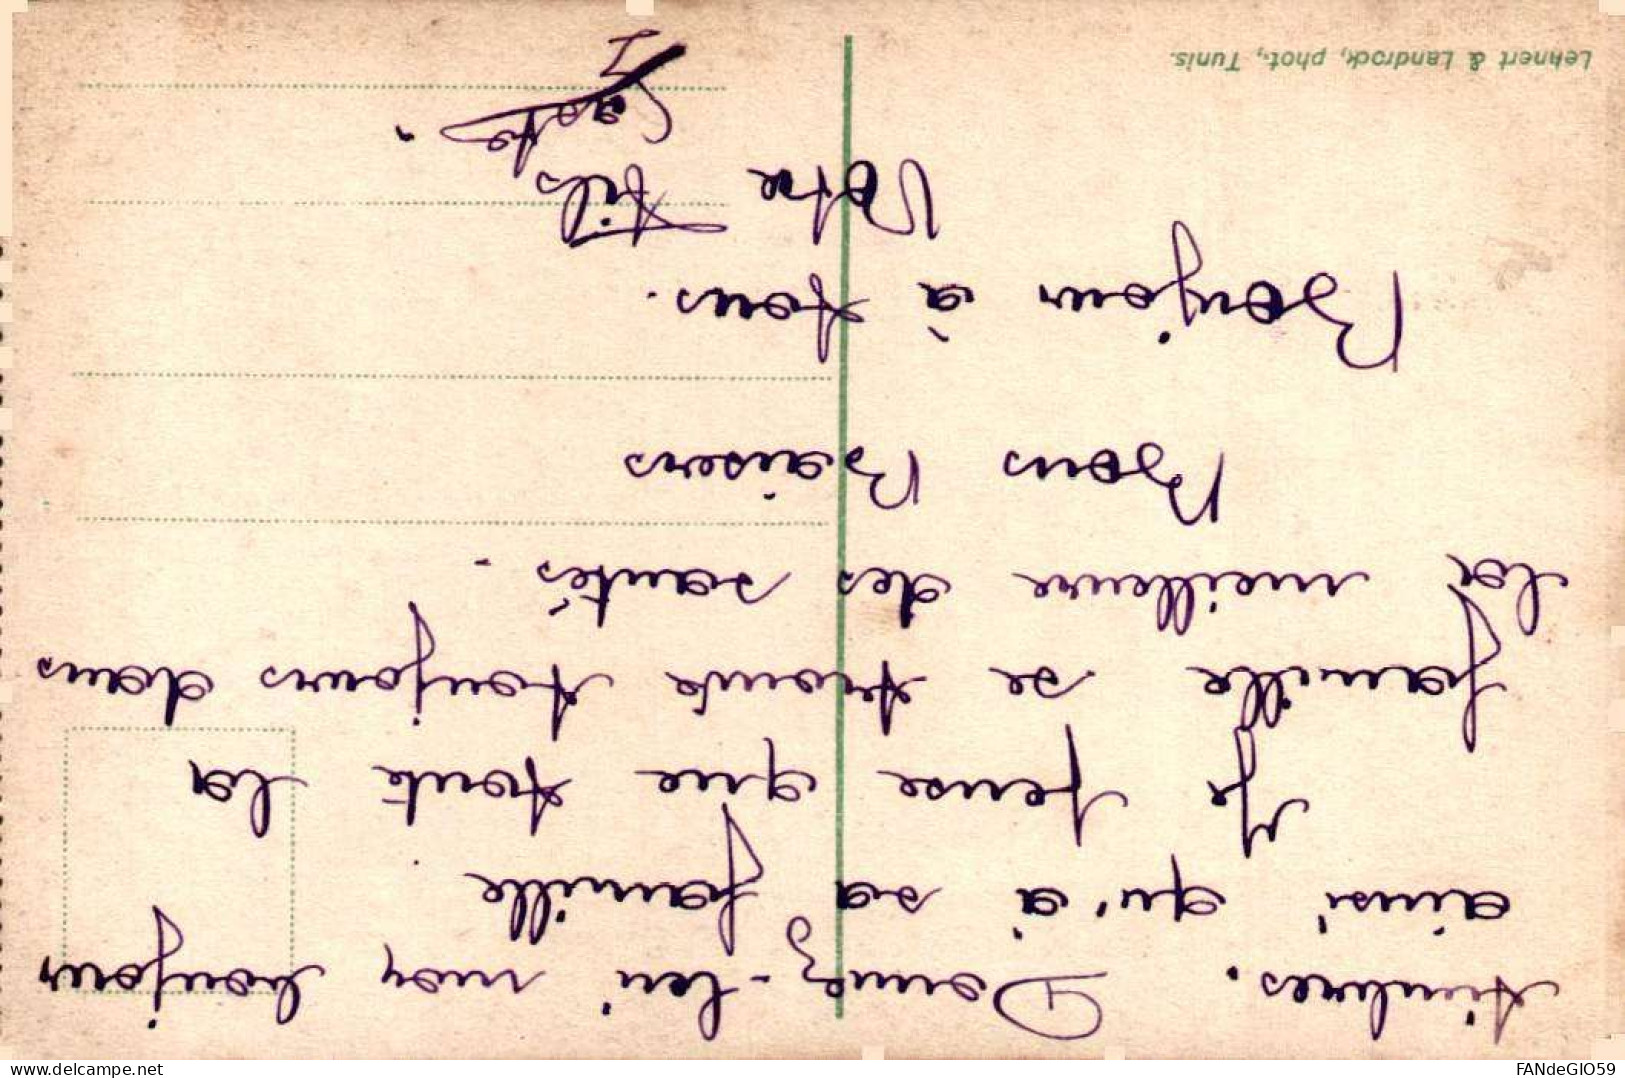 timbres. Donnez-lui mon bonjour
ainsi qu'à sa famille.
Je pense que toute la
famille se trouve toujours dans
la meilleure des santés.
Bons Baisers
Bonjour à tous.
Votre Fils
Lehnert & Landrock, phot., Tunis.
delcampe.net
FANdeGIO59